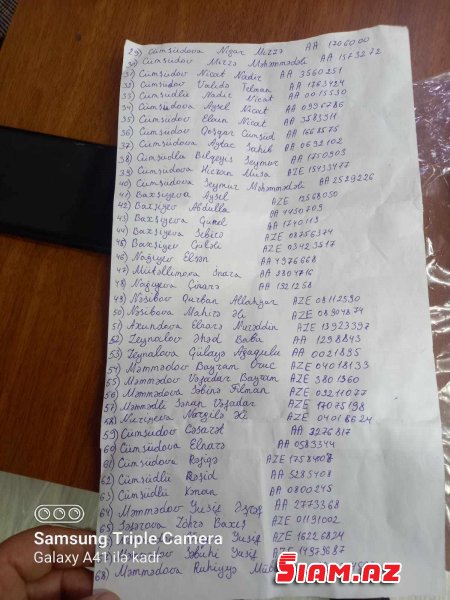 29) Cümşüdova Nigar Mirzə AA 1706000
30) Cümşüdov Mirzə Məhəmmədəli AA 1573272
31) Cümşüdov Nicat Nadir AA 3560251
32) Cümşüdova Validə Telman AA 1763424
33) Cümşüdlü Nadir Nicat AA 0015530
34) Cümşüdova Aysel Nicat AA 0996786
35) Cümşüdov Elcin Nicat AA 3585911
36) Cümşüdov Qoşqar Cümşüd AA 1668575
37) Cümşüdova Aytac Sahib AA 0692102
38) Cümşüdlü Bilqeyis Seymur AA 1750903
39) Cümşüdova Hicran Musa AZE 15433477
40) Cümşüdov Seymur Məhəmmədəli AA 2529226
41) Baxşıyeva Aysel AZE 12568050
42) Baxşıyev Abdulla AA 4450709
43) Baxşıyeva Günel AA 1740113
44) Baxşıyeva Səbirə AZE 08756374
45) Baxşıyev Güləli AZE 03423517
46) Nağıyev Elşən AA 4976668
47) Mütəllimova Inarə AA 2804716
48) Nağıyeva Çinarə AA 1321258
49) Nəsibov Qurban Allahyar AZE 08112590
50) Nəsibova Mahirə Əli AZE 08904874
51) Axundova Elnarə Nurəddin AZE 13923397
52) Zeynalov Əhəd Baba AA 1298843
53) Zeynalova Gülayə Ağaqulu AA 0021895
54) Məmmədov Bayram Oruc AZE 04018133
55) Məmmədov Vəfadar Bayram AZE 3801360
56) Məmmədova Səbinə Filman AZE 03211077
57) Məmmədli Sənan Vəfadar AZE 17075198
58) Nərgilə Əli AZE 04018624
59) Cümşüdov Cəsarət AA 3276817
60) Cümşüdova Elnarə AA 0583344
61) Cümşüdova Rəfiqə AZE 17584008
62) Cümşüdlü Rəşid AA 5285408
63) Cümşüdlü Kənan AA 0800245
64) Məmmədov Yusif Əşrəf AA 2773368
65) Səfərova Zöhrə Baxış AZE 01191002
Yusif AZE 16226824
Səbuhi Yusif AZE 14979687
68) Məmmədova Ruhiyyə
Samsung Triple Camera
Galaxy A41 ilə kadr
SİAM.AZ